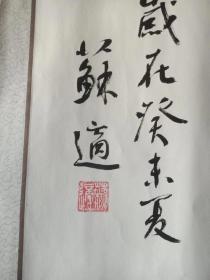 歲在癸未夏
蘇適